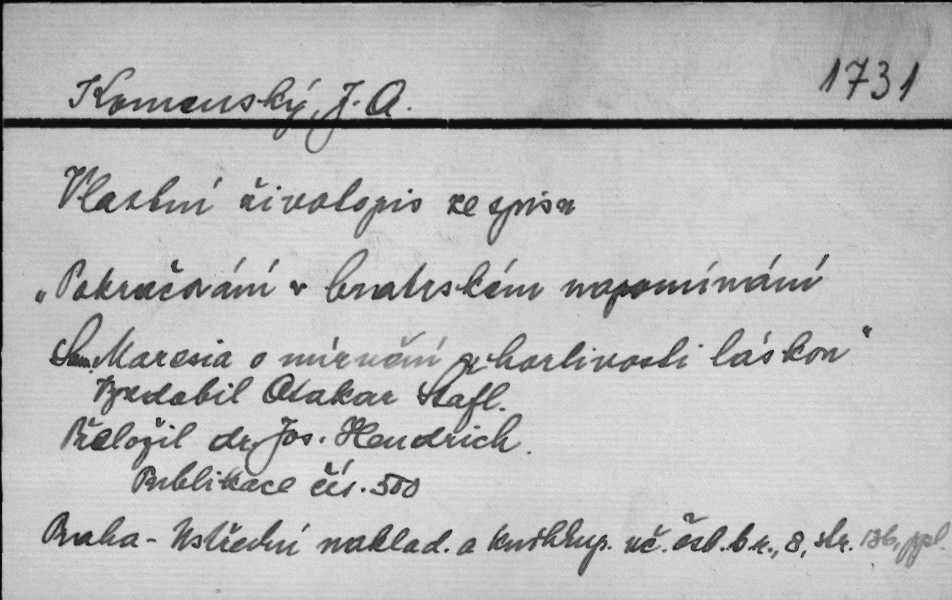 1731
Komenský, J. A.
Vlastní životopis ze spisu
„Pokračování v bratrském napomínání
Sam. Maresia o mírnění horlivosti láskou“
Vyzdobil Otakar Štafl.
Přeložil dr. Jos. Hendrich.
Publikace čís. 500
Praha - Ústřední naklad. a knihkup. uč. čsl. b.r., 8, str. 136, ppl